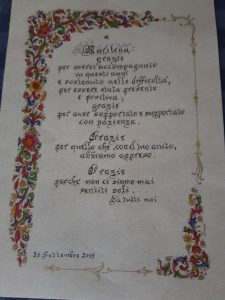 a
Marilena
grazie
per averci accompagnato
in questi anni
e sostenuto nelle difficoltà,
per essere stata presente
e positiva;
grazie
per aver sopportato e supportato
con pazienza.
Grazie
per quello che, con il tuo aiuto,
abbiamo appreso.
Grazie
perché non ci siamo mai
sentiti soli.
Da tutti noi
25 Settembre 2019